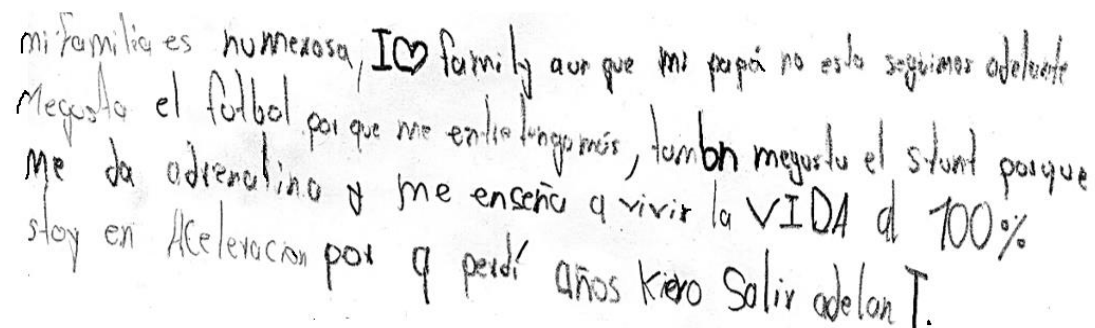 mi familia es numerosa, I♡ family aun que mi papá no esta seguimos adelante
Megusta el futbol por que me entretengo más, tambn megusta el stunt porque
me da adrenalina y me enseña a vivir la VIDA al 100%
stoy en Aceleracion por q perdí años Kiero Salir adelan T.